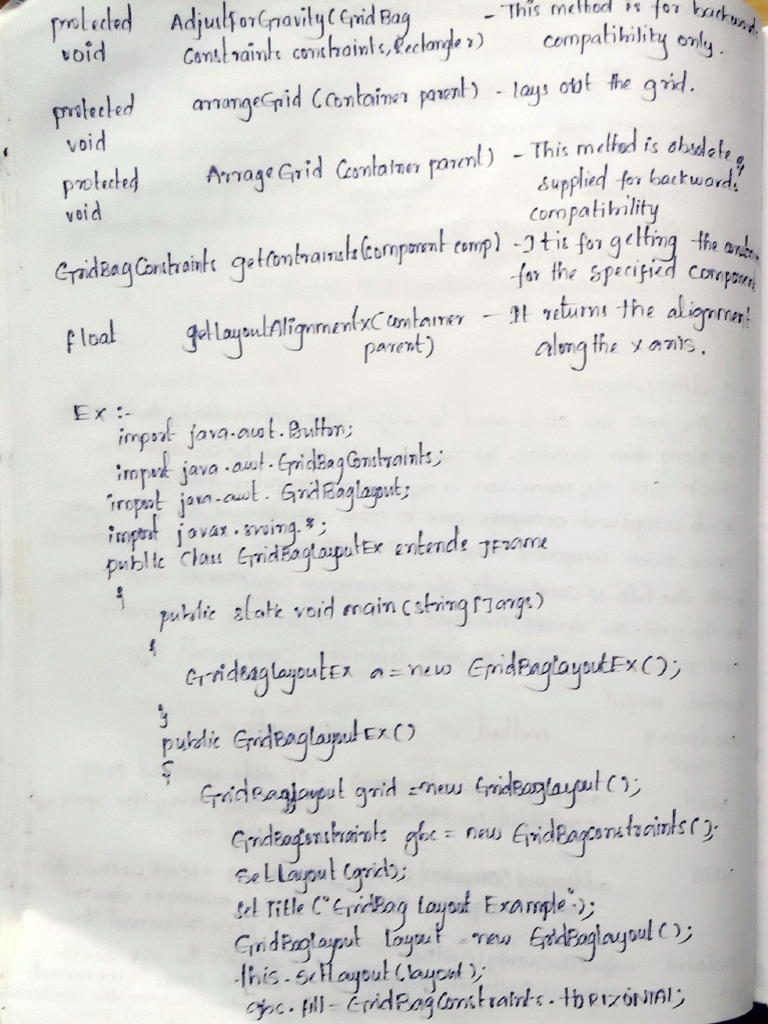 protected AdjustForGravity(GridBag - This method is for backwards
void Constraints constraints, Rectangle r) compatibility only.
protected arrangeGrid (Container parent) - lays out the grid.
void
protected ArrageGrid (container parent) - This method is obsolete &
void supplied for backwards
compatibility
GridBagConstraints getContraints(component comp) - It is for getting the
for the specified component
float getLayoutAlignmentx(container - It returns the alignment
parent) along the x axis.
Ex :-
import java.awt.Button;
import java.awt.GridBagConstraints;
import java.awt. GridBaglayout;
import javax.swing.*;
public Class GridBaglayoutEx extends JFrame
{
public static void main (string[] args)
{
GridBaglayoutEx a = new GridBaglayoutEx();
}
public GridBaglayoutEx()
{
GridBaglayout grid = new GridBaglayout();
GridBagonstraints gbc = new GridBagconstraints();
SetLayout (grid);
Set Title ("GridBag layout Example");
GridBaglayout layout = new GridBaglayout();
this.SetLayout(layout);
gbc.fill = GridBagConstraints.HORIZONTAL;